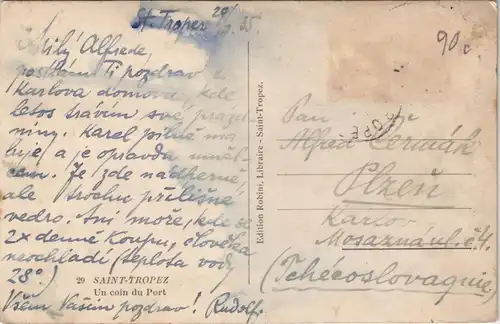 St. Tropez 29/ 35.
Milý Alfrede,
posílám Ti pozdrav z
Karlova domova, kde
letos trávím své prázd-
niny. Karel pilně ma-
luje, a je opravdu uměl-
cem. Je zde nádherně,
ale trochu přílišné
vedro. Ani moře, kde se
2x denně koupu, člověka
neochladí (teplota vody
28°.)
Všem Vašim pozdrav! Rudolf.
29 SAINT-TROPEZ
Un coin du Port
Edition Robini, Libraire - Saint-Tropez.
90c
TROPEZ
Pan
Alfred Čermák
Plzeň
Karlov
Mosazná ul. č. 4.
(Tchécoslovaquie)